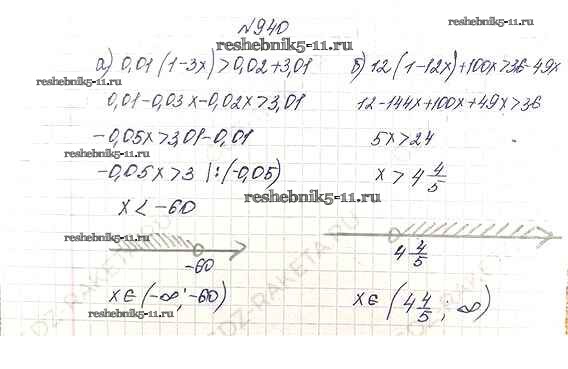 №940
reshebnik5-11.ru
а) 0,01 (1-3x) > 0,02+3,01
reshebnik5-11.ru
0,01-0,03x-0,02x>3,01
-0,05x>3,01-0,01
reshebnik5-11.ru
-0,05x>3 |:(-0,05)
x < -60
reshebnik5-11.ru
-60
x ∈ (-∞; -60)
reshebnik5-11.ru
б) 12(1-12x)+100x>36-49x
reshebnik5-11.ru
12-144x+100x+49x>36
5x>24
x > 4 4/5
reshebnik5-11.ru
4 4/5
x ∈ (4 4/5; ∞)
GDZ-RAKETA.RU